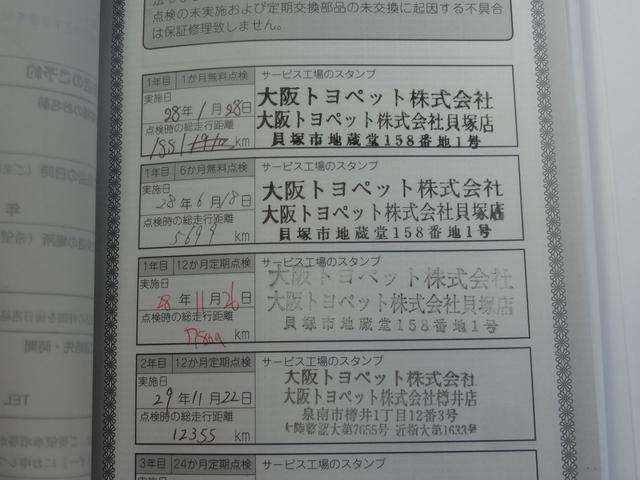 点検の未実施および定期交換部品の未交換に起因する不具合
は保証修理致しません。
1年目 1か月無料点検 サービス工場のスタンプ
実施日
28年1月28日
点検時の総走行距離
1881 km
大阪トヨペット株式会社
大阪トヨペット株式会社貝塚店
貝塚市地蔵堂158番地1号
1年目 6か月無料点検 サービス工場のスタンプ
実施日
28年6月18日
点検時の総走行距離
5699 km
大阪トヨペット株式会社
大阪トヨペット株式会社貝塚店
貝塚市地蔵堂158番地1号
1年目 12か月定期点検 サービス工場のスタンプ
実施日
28年11月26日
点検時の総走行距離
km
大阪トヨペット株式会社
大阪トヨペット株式会社貝塚店
貝塚市地蔵堂158番地1号
2年目 12か月定期点検 サービス工場のスタンプ
実施日
29年11月22日
点検時の総走行距離
12355 km
大阪トヨペット株式会社
大阪トヨペット株式会社樽井店
泉南市樽井1丁目12番3号
大陸整認大第7655号 近指大第1633号
3年目 24か月定期点検 サービス工場のスタンプ
実施日